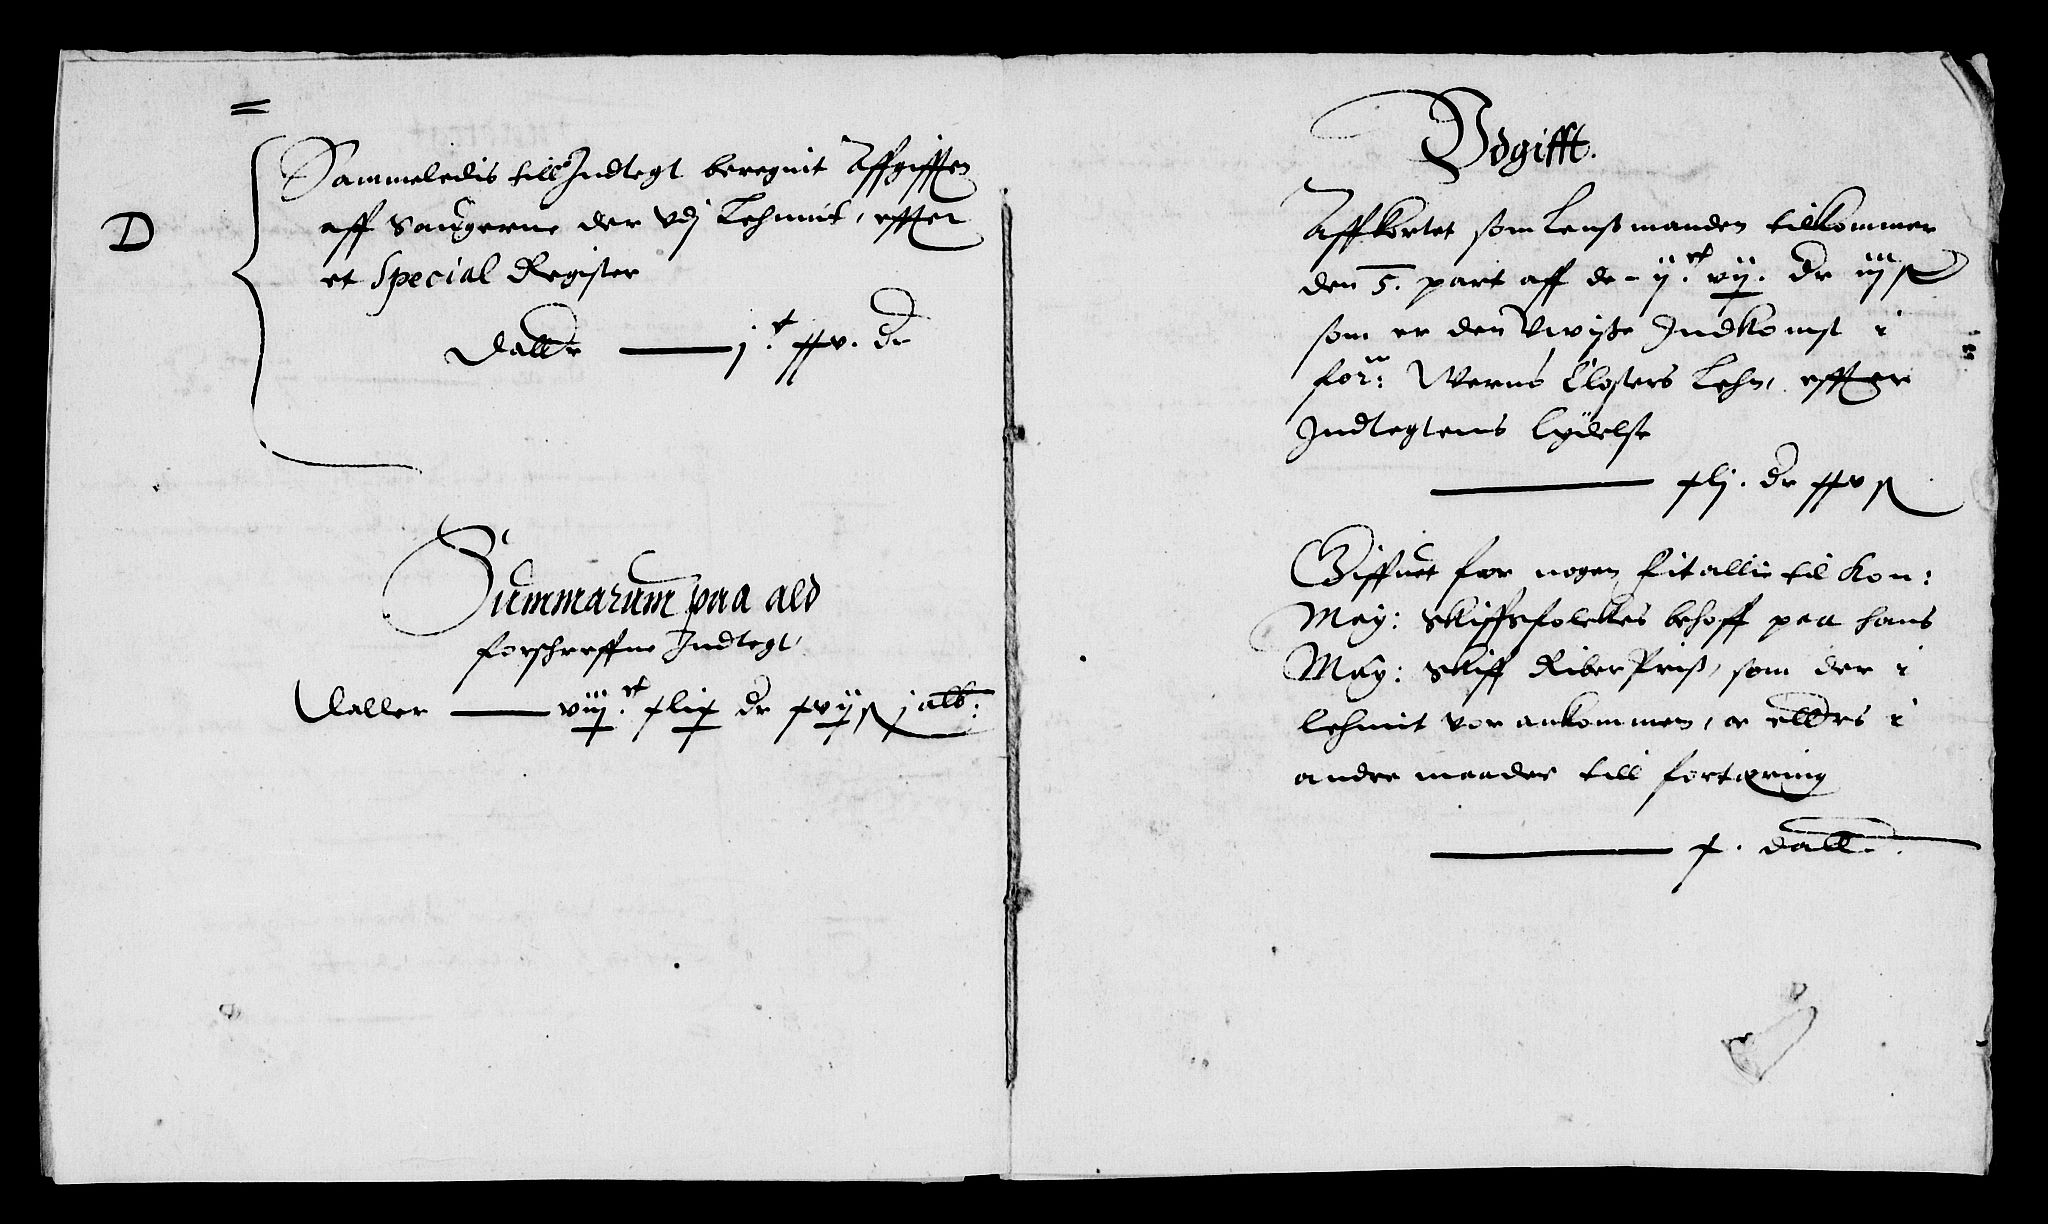 D
Sammeledis till Indtegt beregnit Affgifften
aff Saugerne der vdj Lehnnit, effter
et Special Register
Daller j.c xxv. dr
Summarum paa ald
forschreffne Indtegt
Daller viij.c xlix dr xvij ß j alb:
Vdgifft.
Affkortet som Lenßmanden tilkommer
den 5. part aff de ij.c vij. dr iij ß
som er den Vwiße Indkomst i
for:ne Werne Closters Lehn, effter
Indtegtens lydelse
xlj. dr xxv ß
Giffuet for nogen fitallie til Kon:
May: Skiffsfolckes behoff paa hans
May: Skiff Riber Priß, som der i
lehnnit var ankommen, oc ellers i
andre maader till fortæring
x. Dall